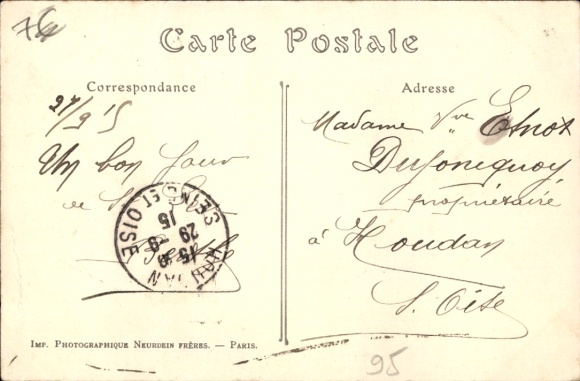 Carte Postale
Correspondance
Adresse
27/9 15
Un bon jour
de
Madame Vve Etnot
Dujoncquoy
propriétaire
à Houdan
S. Oise
SEINE ET OISE
15
29 -9
15
IMP. PHOTOGRAPHIQUE NEURDEIN FRÈRES. — PARIS.
95